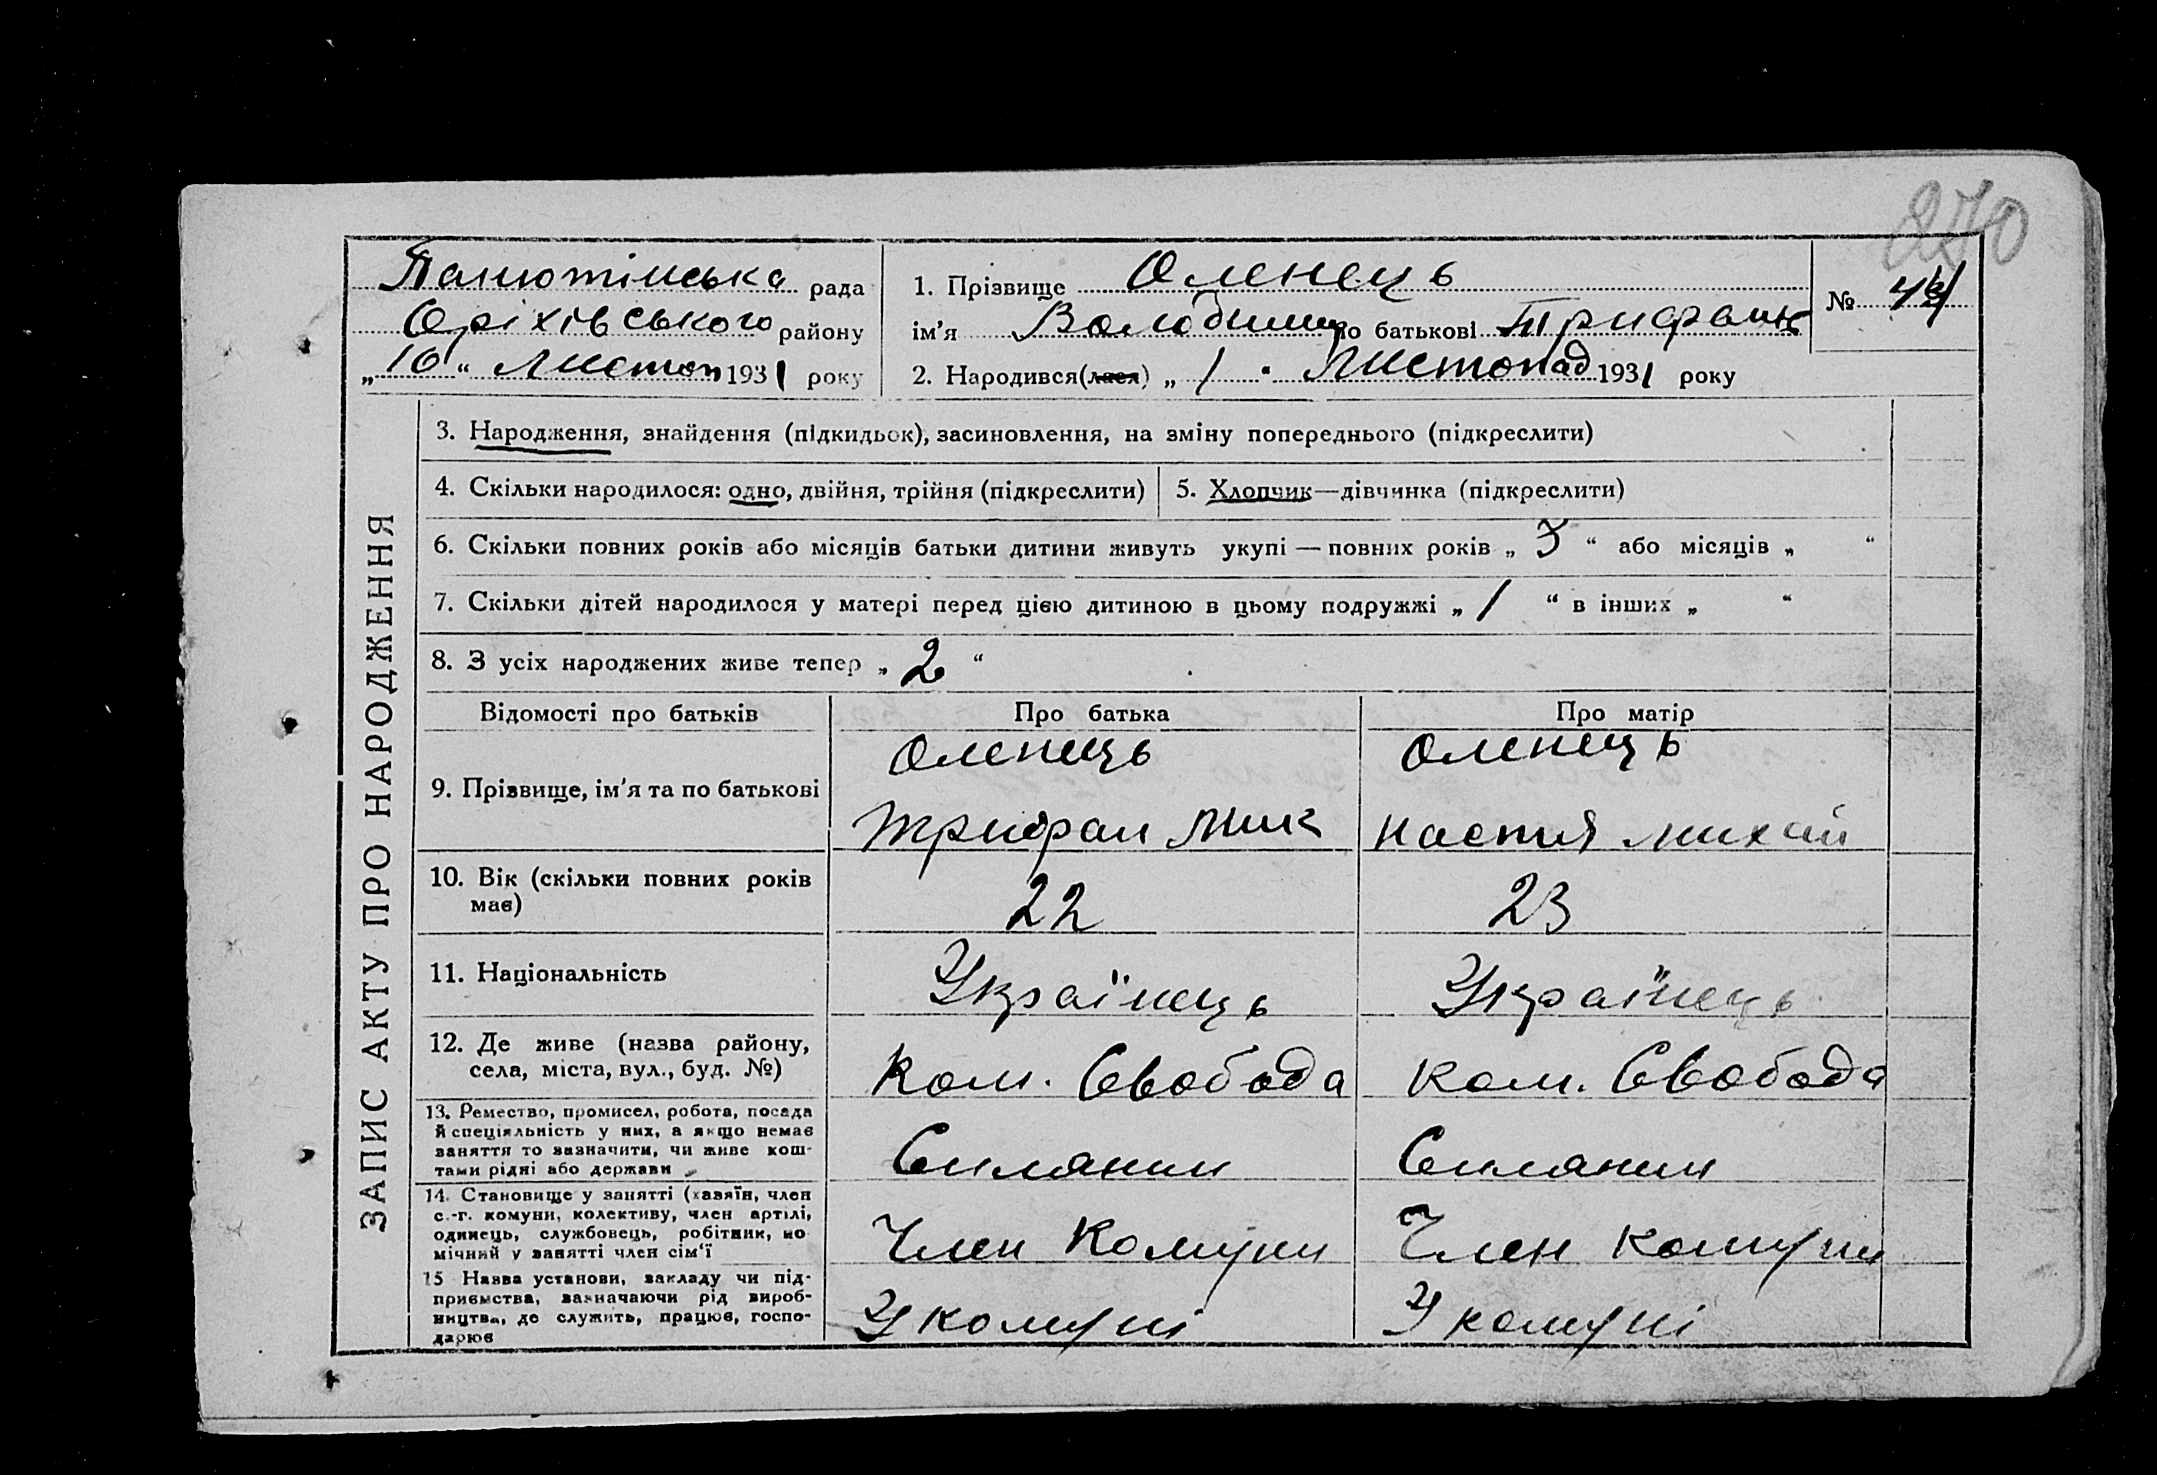 270
Панютінська рада
Оріхівського району
„ 16 “ Листоп 1931 року
1. Прізвище Оленець
ім’я Володимир по батькові Трифан
2. Народився(лася) „ 1 “ Листопад 1931 року
№
ЗАПИС АКТУ ПРО НАРОДЖЕННЯ
3. Народження, знайдення (підкидьок), засиновлення, на зміну попереднього (підкреслити)
4. Скільки народилося: одно, двійня, трійня (підкреслити)
5. Хлопчик—дівчинка (підкреслити)
6. Скільки повних років або місяців батьки дитини живуть укупі — повних років „ 3 “ або місяців „ “
7. Скільки дітей народилося у матері перед цією дитиною в цьому подружжі „ 1 “ в інших „ “
8. З усіх народжених живе тепер „ 2 “
Відомості про батьків Про батька Про матір
9. Прізвище, ім’я та по батькові
Оленець
Трифан Мик
Оленець
Настия Михай
10. Вік (скільки повних років
має)
22
23
11. Національність
Українець
Українець
12. Де живе (назва району,
села, міста, вул., буд. №)
Ком. Свобода
Ком. Свобода
13. Ремество, промисел, робота, посада
й спеціяльність у них, а якщо немає
заняття то зазначити, чи живе кош-
тами рідні або держави
Силянин
Силянин
14. Становище у занятті (хазяїн, член
с.-г. комуни, колективу, член артілі,
одинець, службовець, робітник, по
мічний у занятті член сім’ї
Член Комуни
Член Комуни
15 Назва установи, закладу чи під-
приємства, зазначаючи рід вироб-
ництва, де служить, працює, госпо-
дарює
У комуні
У комуні